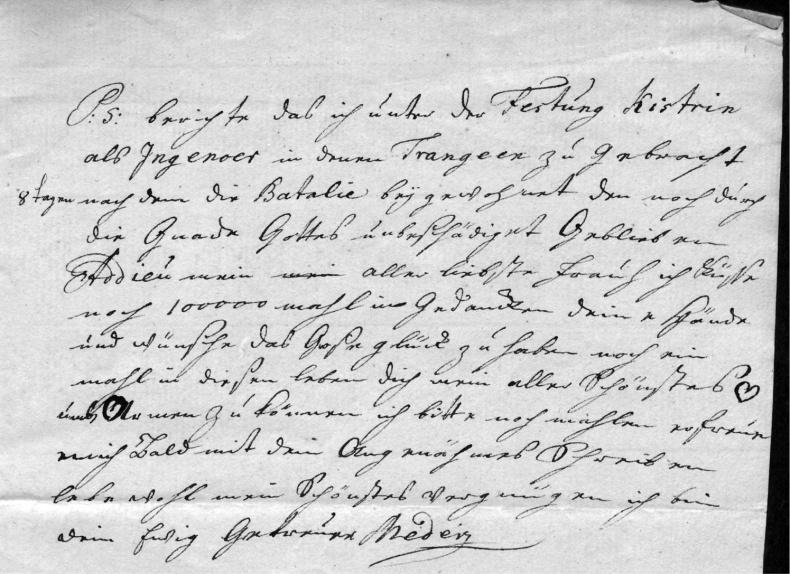 P: S: berichte das ich unter der Festung Kistrin
als Ingenoer in denen Trangeen zu Gebracht
8 tagen nach dem die Batalie beygewohnet den noch durch
die Gnade Gottes unbeschädiget Geblieben
Addieu mein mein aller liebste Frauh ich Küsse
noch 100000 mahl in Gedancken deine Hände
und wünsche das Grose glück zu haben noch ein
mahl in diesen leben dich mein aller Schönstes ♡
umb Armen zu können ich bitte noch mahlen erfreue
mich Bald mit dein Angenähmes Schreiben
lebe wohl mein Schönstes Vergnügen ich bin
dein Ewig Getreuer